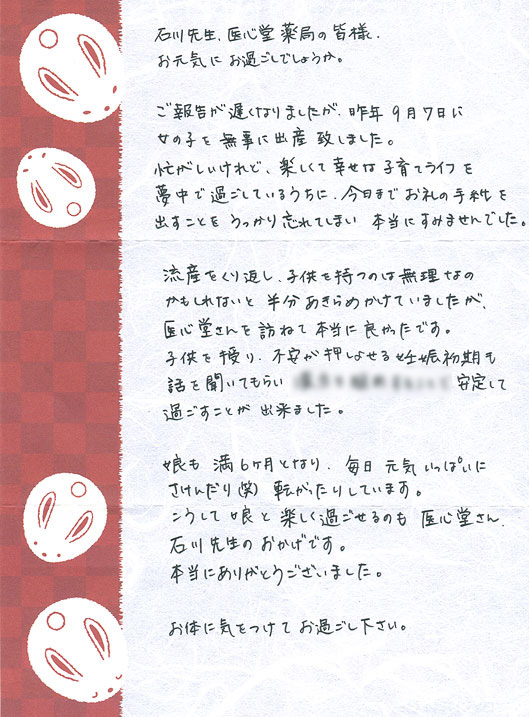 石川先生、医心堂薬局の皆様、
お元気にお過ごしでしょうか。
ご報告が遅くなりましたが、昨年9月7日に
女の子を無事に出産致しました。
忙がしいけれど、楽しくて幸せな子育てライフを
夢中で過ごしているうちに、今日までお礼の手紙を
出すことをうっかり忘れてしまい本当にすみませんでした。
流産をくり返し、子供を持つのは無理なの
かもしれないと半分あきらめかけていましたが、
医心堂さんを訪ねて本当に良かったです。
子供を授り、不安が押しよせる妊娠初期も
話を聞いてもらい 安定して
過ごすことが出来ました。
娘も満6ヶ月となり、毎日元気いっぱいに
さけんだり(笑)転がったりしています。
こうして娘と楽しく過ごせるのも医心堂さん、
石川先生のおかげです。
本当にありがとうございました。
お体に気をつけてお過ごし下さい。